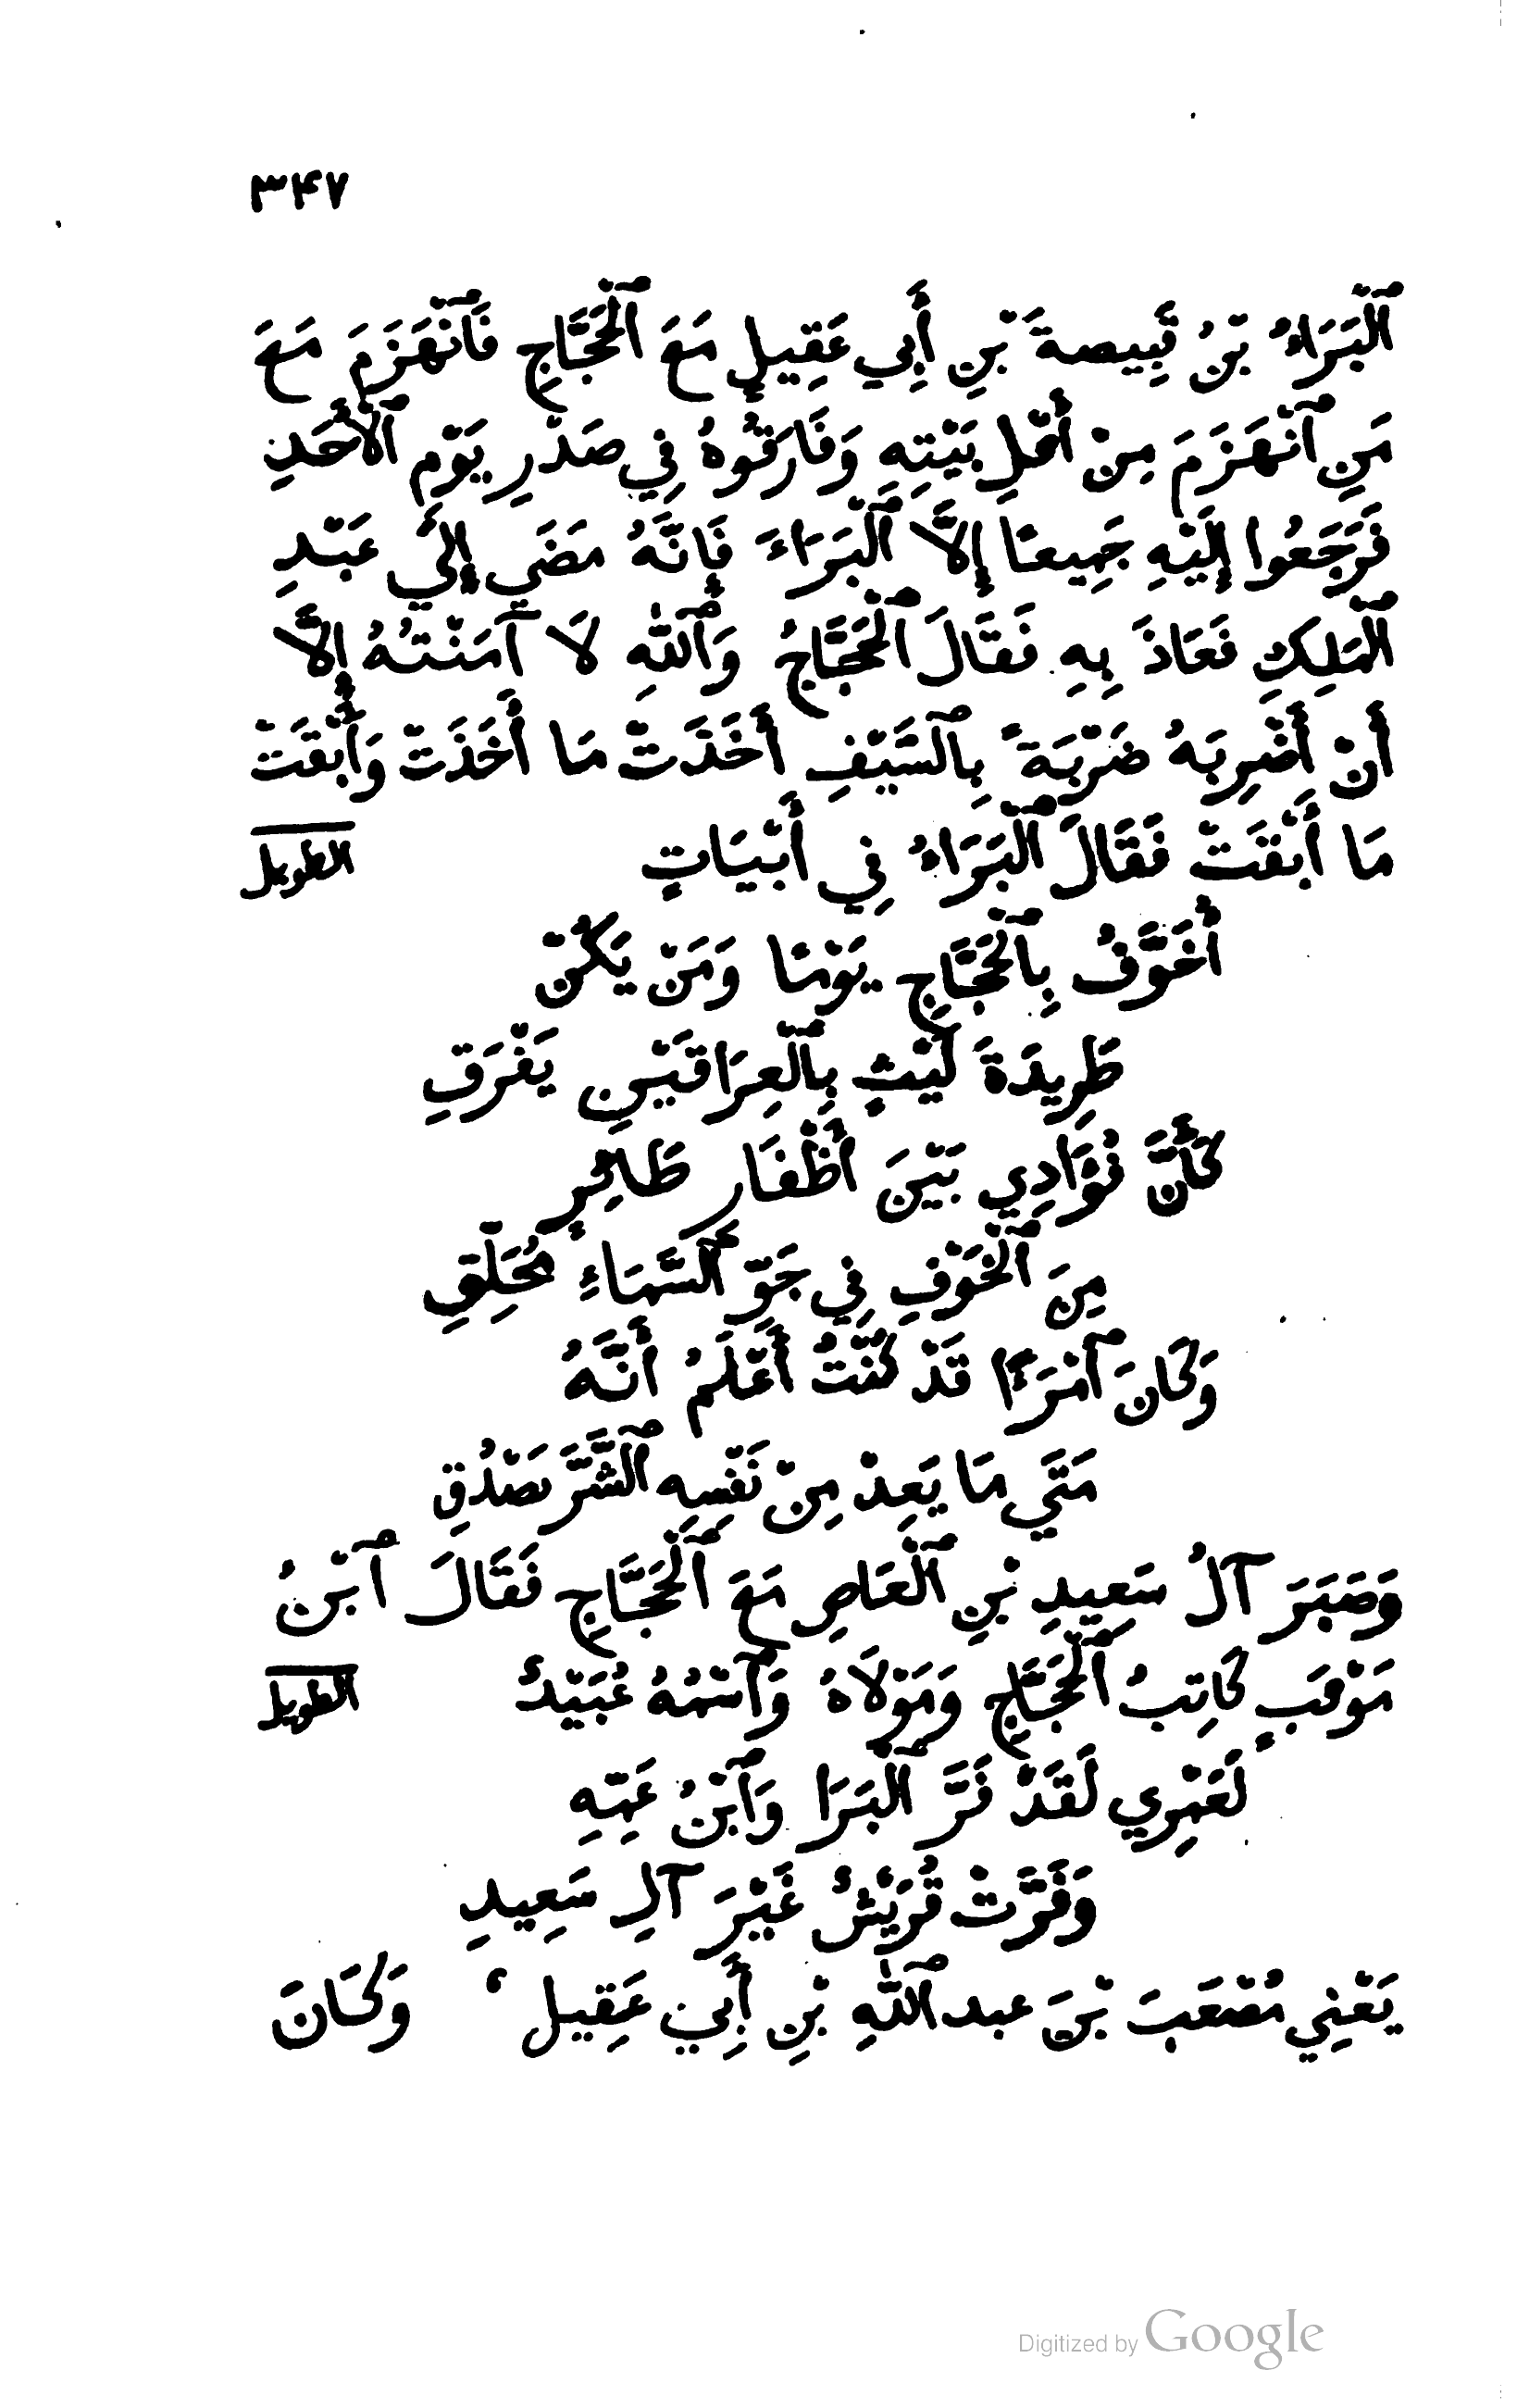 ٣٤٧
ٱلْبَرَاءُ بْنُ قَبِيصةَ بْنِ أَبِي عَقِيلٍ مَعَ ٱلْحَجَّاجِ فَٱنْهَزَمَ مَعَ
مَنِ ٱنْهَزَمَ مِنْ أَهْلِ بَيْتِهِ وَفَارَقُوهُ فِي صَدْرِ يَوْمِ ٱلْأَحَدِ
فَرَجَعُوا إِلَيْهِ جَمِيعًا إِلَّا ٱلْبَرَاءَ فَإِنَّهُ مَضَى إِلَى عَبْدِ
ٱلْمَلِكِ فَعَاذَ بِهِ فَقَالَ ٱلْحَجَّاجُ وَٱللّٰهِ لَا آمَنْتُهُ إِلَّا
أَنْ أَضْرِبَهُ ضَرْبَةً بِٱلسَّيْفِ أَخَذَتْ مَا أَخَذَتْ وَأَبْقَتْ
مَا أَبْقَتْ فَقَالَ ٱلْبَرَاءُ فِي أَبْيَاتٍ الطويل
أُخَوَّفُ بِٱلْحَجَّاجِ يَوْمًا وَمَنْ يَكُنْ
طَرِيدَةَ لَيْثٍ بِٱلْعِرَاقَيْنِ يَفْرَقِ
كَأَنَّ فُؤَادِي بَيْنَ أَظْفَارِ طَائِرٍ
مِنَ ٱلْخَوْفِ فِي جَوِّ ٱلسَّمَاءِ مُحَلِّقِ
وَكَانَ ٱمْرَءًا قَدْ كُنْتُ أَعْلَمُ أَنَّهُ
مَتَى مَا يَعِدْ مِنْ نَفْسِهِ ٱلشَّرَّ يَصْدُقِ
وَصَبَرَ آلُ سَعِيدِ بْنِ ٱلْعَاصِ مَعَ ٱلْحَجَّاجِ فَقَالَ ٱبْنُ
مَوْهَبٍ كَاتِبُ ٱلْحَجَّاجِ وَمَوْلَاهُ وَٱسْمُهُ عُبَيْدٌ الطويل
لَعَمْرِي لَقَدْ فَرَّ ٱلْبَرَا وَٱبْنُ عَمِّهِ
وَفَرَّتْ قُرَيْشٌ غَيْرَ آلِ سَعِيدِ
يَعْنِي مُصْعَبَ بْنَ عبد ٱللّٰهِ بْنِ أَبِي عَقِيلٍ، وَكَانَ
Digitized by Google